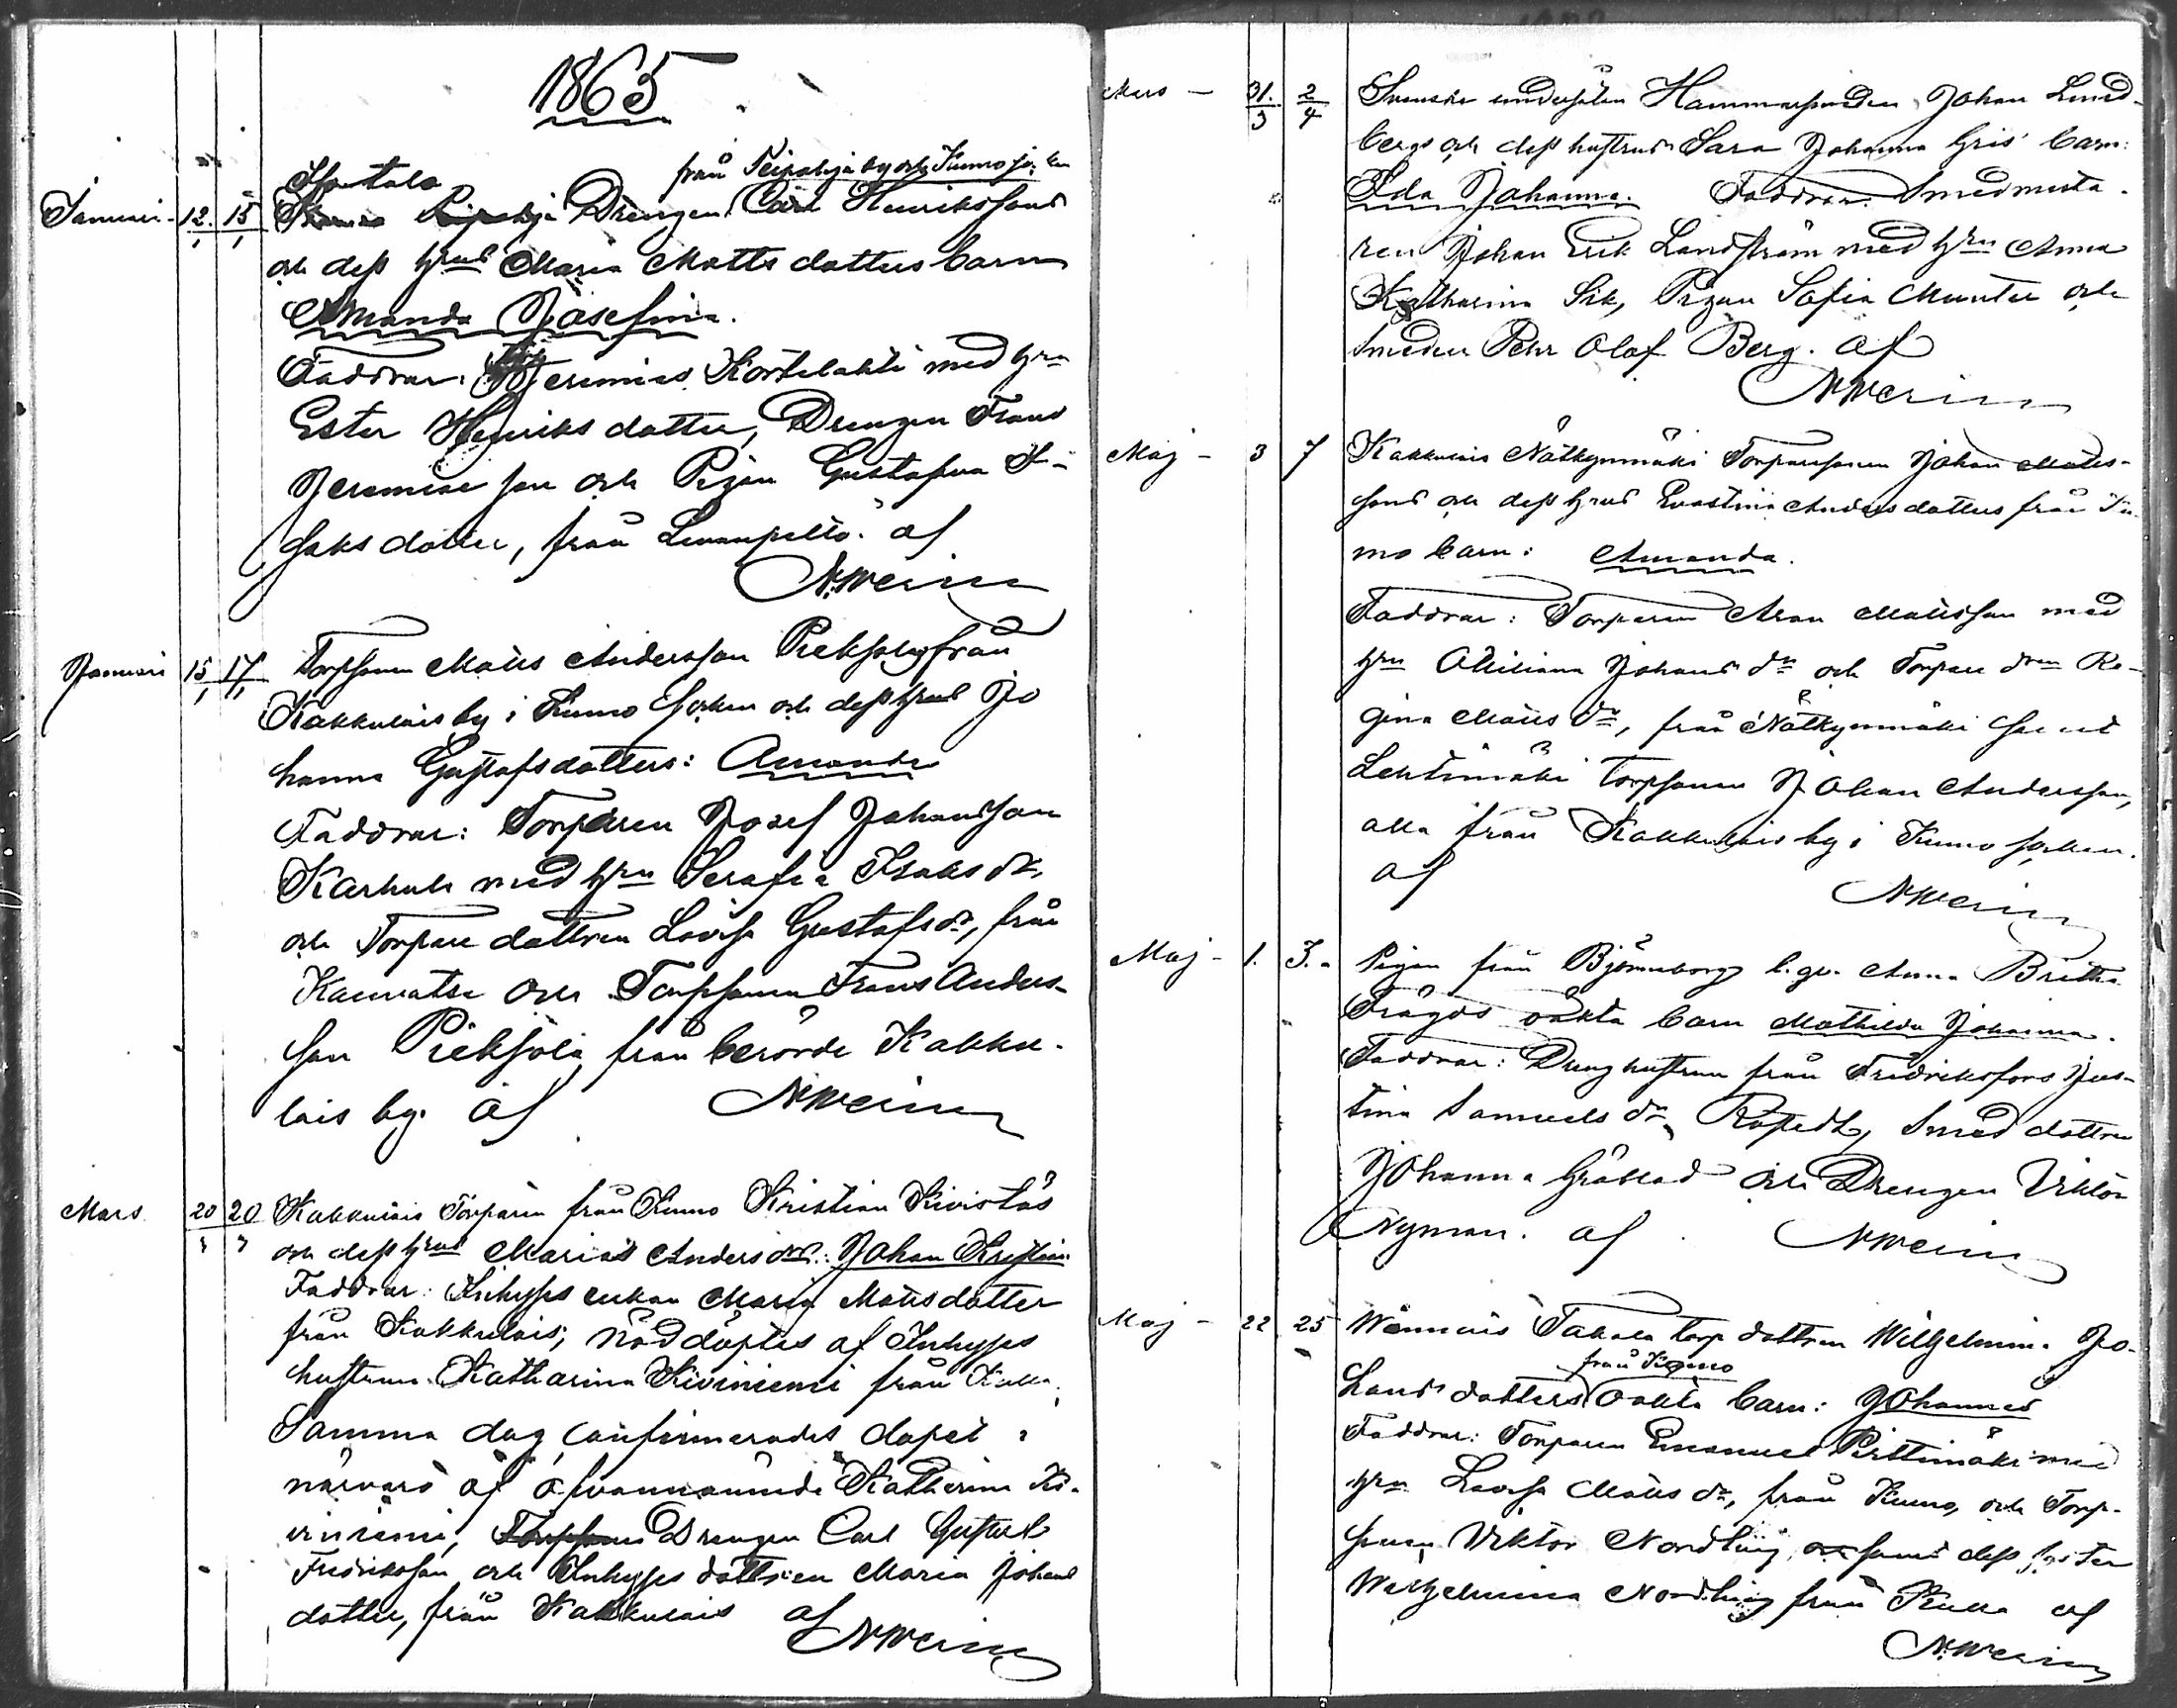 1865
från Peipohja by och Kumo so: en
Januari - 12. 15 Drengen Carl Henrikssons
1 1 och dess hrus Maria Matts dotters barn
Amanda Josefina.
Faddrar: Jeremias Kortelahti med hrn
Ester Henriks dotter, Drengen Frans
Jeremiae son och Pigan Gustafva I-
saks dotter, från Levanpelto. af
N. Wein
Januari 15 17 Torpsonen Matts Andersson Pieksola från
1 1 Kakkulais by i Kumo socken och dess hrus Jo
hanna Gustafsdotters: Amanda
Faddrar: Torparen Josef Johansson
Karhula med hrn Serafia Isaks dr,
och Torpare dottren Lovisa Gustafs dr, från
Kauvatsa och Torpsonen Frans Anders-
son Pieksola från berörde Kakku-
lais by. af N Wein
Mars 20 20 Kakkulais Torparen från Kumo Kristian Kivistös
3 3 och dess hrus Marias Anders drs: Johan Kristian
Faddrar: Inhyses enkan Maria Mattsdotter
från Kakkulais; nöddöptes af Inhyses
hustrun Katharina Kiviniemi från Kulla.
Samma dag confirmerades dopet i
närvaro af ofvannämnde Katharina Ki-
viniemi, Drengen Carl Gustaf
Fredriksson och Inhyses dottren Maria Johans
dotter, från Kakkulais af
N Wein
Mars - 31. 2 Svenske undersåten Hammarsmeden Johan Lind-
3 4 bergs och dess hustrus Sara Johanna Gris' barn:
Ida Johanna. Faddrar: Smedmästa-
ren Johan Erik Landström med hrn Anna
Katharina Sik, Pigan Sofia Munter och
Smeden Pehr Olof Berg. af
N Wein
Maj - 3 7 Kakkulais Nätkynmäki Torparesonen Johan Matts-
sons och dess hrus Evastina Andersdotters från Ku-
mo barn: Amanda.
Faddrar: Torparen Aron Mattsson med
hrn Johans dr och Torpare drn Re-
gina Matts dr, från Nätkynmäki samt
Lehtimäki Torpsonen Johan Andersson,
alla från Kakkulais by i Kumo socken.
af
N Wein
Maj - 1. 3. Pigan från Björneborg Anna Britha
Trägos oäkta barn Mathilda Johanna.
Faddrar: Drenghustrun från Fredriksfors Jus-
tina Samuels dr, Smed dottren
Johanna Grönblad och Drengen Viktor
Nyman. af N Wein
Maj - 22 25 Takala torp dottren Wilhelmina Jo-
från Kumo
hans dotters oäkta barn: Johannes
Faddrar: Torparen Emanuel Pirttimäki med
hrn Lovisa Matts dr, från Kumo, och Torp-
sonen Viktor Nordling, samt dess syster
Wilhelmina Nordling från Kulla af
N. Wein